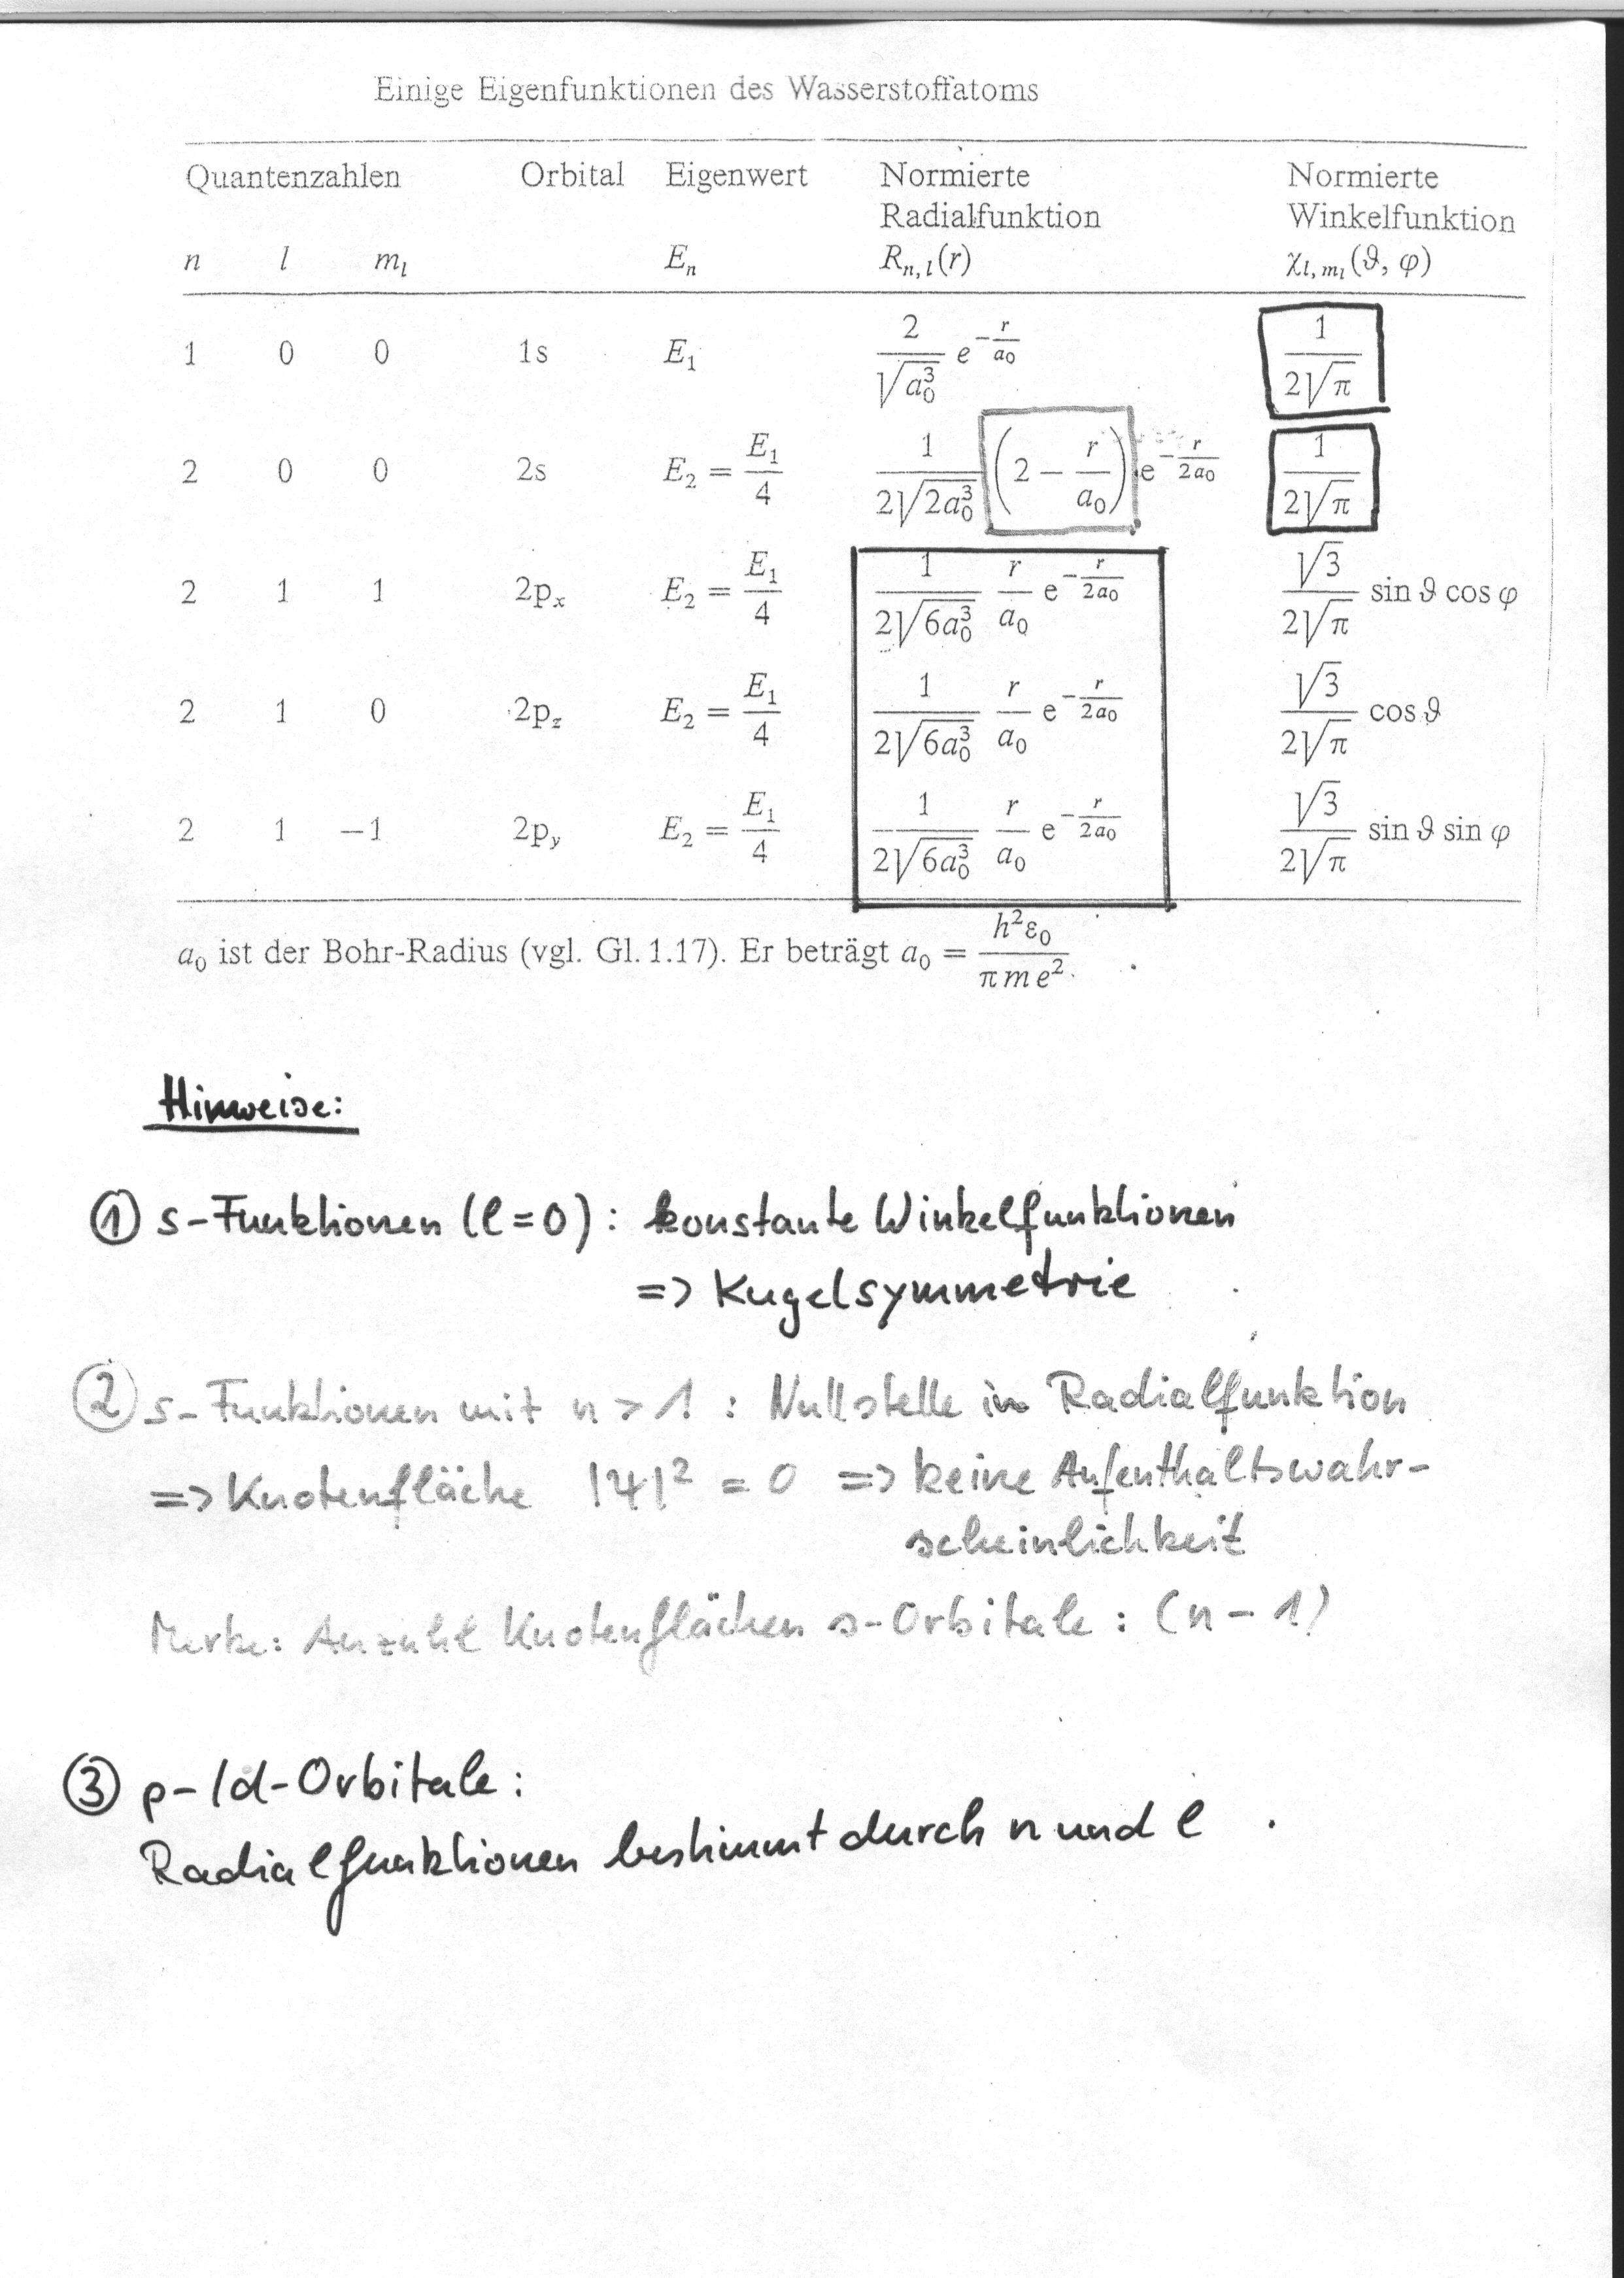 Einige Eigenfunktionen des Wasserstoffatoms
Quantenzahlen Orbital Eigenwert Normierte Radialfunktion Normierte Winkelfunktion
n l m_l E_n R_{n,l}(r) χ_{l,m_l}(ϑ, φ)
1 0 0 1s E_1 \frac{2}{\sqrt{a_0^3}} e^{-\frac{r}{a_0}} \frac{1}{2\sqrt{π}}
2 0 0 2s E_2 = \frac{E_1}{4} \frac{1}{2\sqrt{2a_0^3}} (2 − \frac{r}{a_0}) e^{-\frac{r}{2a_0}} \frac{1}{2\sqrt{π}}
2 1 1 2p_x E_2 = \frac{E_1}{4} \frac{1}{2\sqrt{6a_0^3}} \frac{r}{a_0} e^{-\frac{r}{2a_0}} \frac{\sqrt{3}}{2\sqrt{π}} sin ϑ cos φ
2 1 0 2p_z E_2 = \frac{E_1}{4} \frac{1}{2\sqrt{6a_0^3}} \frac{r}{a_0} e^{-\frac{r}{2a_0}} \frac{\sqrt{3}}{2\sqrt{π}} cos ϑ
2 1 −1 2p_y E_2 = \frac{E_1}{4} \frac{1}{2\sqrt{6a_0^3}} \frac{r}{a_0} e^{-\frac{r}{2a_0}} \frac{\sqrt{3}}{2\sqrt{π}} sin ϑ sin φ
a_0 ist der Bohr-Radius (vgl. Gl. 1.17). Er beträgt a_0 = \frac{h^2 ε_0}{π m e^2}.
Hinweise:
① s-Funktionen (l=0): konstante Winkelfunktionen
=> Kugelsymmetrie
② s-Funktionen mit n > 1 : Nullstelle in Radialfunktion
=> Knotenfläche |Ψ|² = 0 => keine Aufenthaltswahr-
scheinlichkeit
Merke: Anzahl Knotenflächen s-Orbitale : (n - 1)
③ p-/d-Orbitale:
Radialfunktionen bestimmt durch n und l